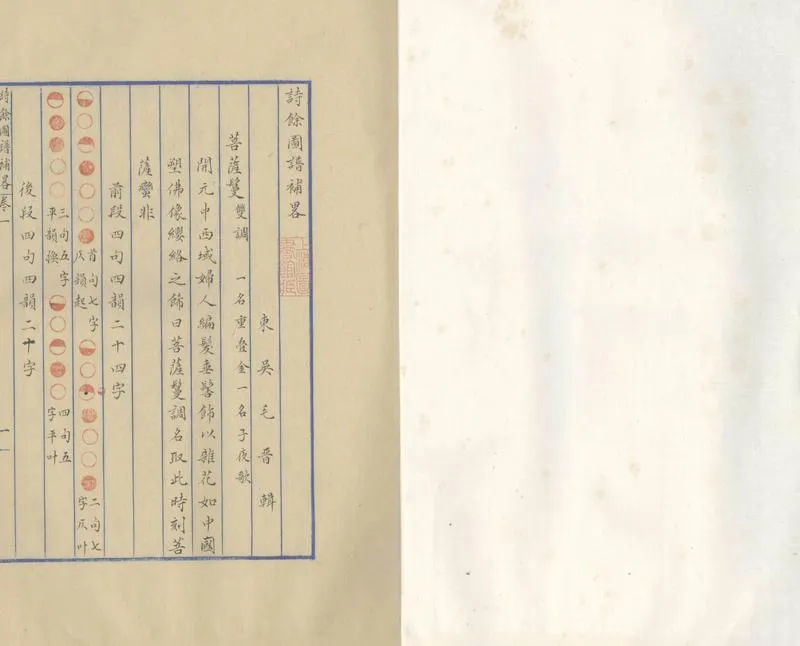 詩餘圖譜補畧
東吳毛晉輯
菩薩鬘雙調 一名重叠金一名子夜歌
開元中西域婦人編髮垂髻飾以雜花如中國
塑佛像纓絡之飾曰菩薩鬘調名取此時刻菩
薩蠻非
前段四句四韻二十四字
首句七字仄韻起 二句七字仄叶
三句五字平韻換 四句五字平叶
後段四句四韻二十字
詩餘圖譜補畧卷一 一